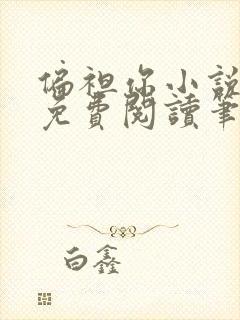 偏袒你小說
免費閱讀筆
白鑫